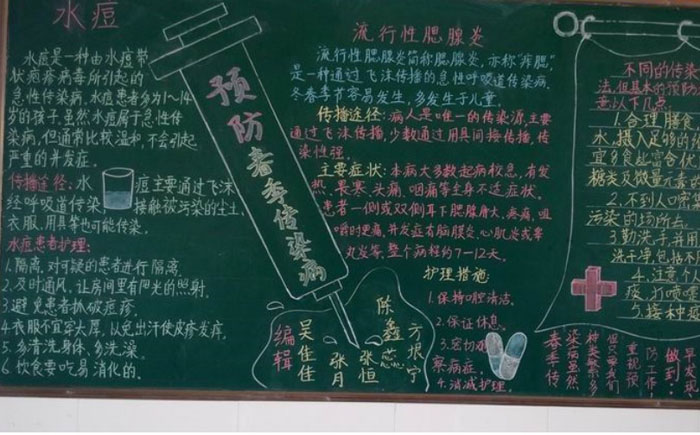 水痘
水痘是一种由水痘带
状疱疹病毒所引起的
急性传染病,水痘患者多为1~14
岁的孩子,虽然水痘属于急性传
染病,但通常比较温和,不会引起
严重的并发症。
传播途径:水 痘主要通过飞沫
经呼吸道传染, 接触被污染的土土、
衣服、用具等也可能传染。
水痘患者护理:
1.隔离,对可疑的患者进行隔离,
2.及时通风,让房间里有阳光的照射,
3.避免患者抓破痘疹,
4.衣服不宜牢太厚,以免出汗使皮疹发痒,
5.多清洗身体、多洗澡。
6.饮食要吃易消化的。
预防春季传染病
编辑
吴佳佳
张月
张恒
陈鑫蕊
方振宁
流行性腮腺炎
流行性腮腺炎简称腮腺炎,亦称“痄腮”,
是一种通过飞沫传播的急性呼吸道传染病,
冬春季节容易发生,多发生于儿童。
传播途径:病人是唯一的传染源,主要
通过飞沫传播,少数通过用具间接传播,传
染性强。
主要症状:本病大多数起病校急,有发
热、畏寒、头痛、咽痛等全身不适症状。
患者一侧或双侧耳下腮腺肿大、疼痛,咀
嚼时更痛,并发症有脑膜炎、心肌炎或睾
丸炎等,整个病程约7-12天。
护理措施:
1.保持口腔清洁,
2.保证休息,
3.密切观
察病症,
4.消减护理,
不同的传染
法,但基本的预防
意以下几点
1.合理膳食
水,摄入足够的
宜多食些富含优
糖类及微量元素
2.不到人口
污染的场所去
3.勤洗手,并用
洗干净包括不
4.注意个
疫,打喷
5.接种疫
春季传
染病虽然
种类繁多
但只要我们
重视预
防工作,
做到